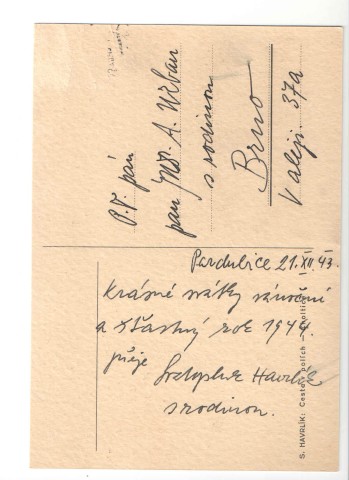 P.T. pán
pan MDr. A. Urban
s rodinou
Brno
V aleji 37a
Pardubice 21.XII.43.
Krásné svátky vánoční
a šťastný rok 1944
přeje Svatopluk Havrlík
s rodinou.
S. HAVRLÍK: Cesta v polích —